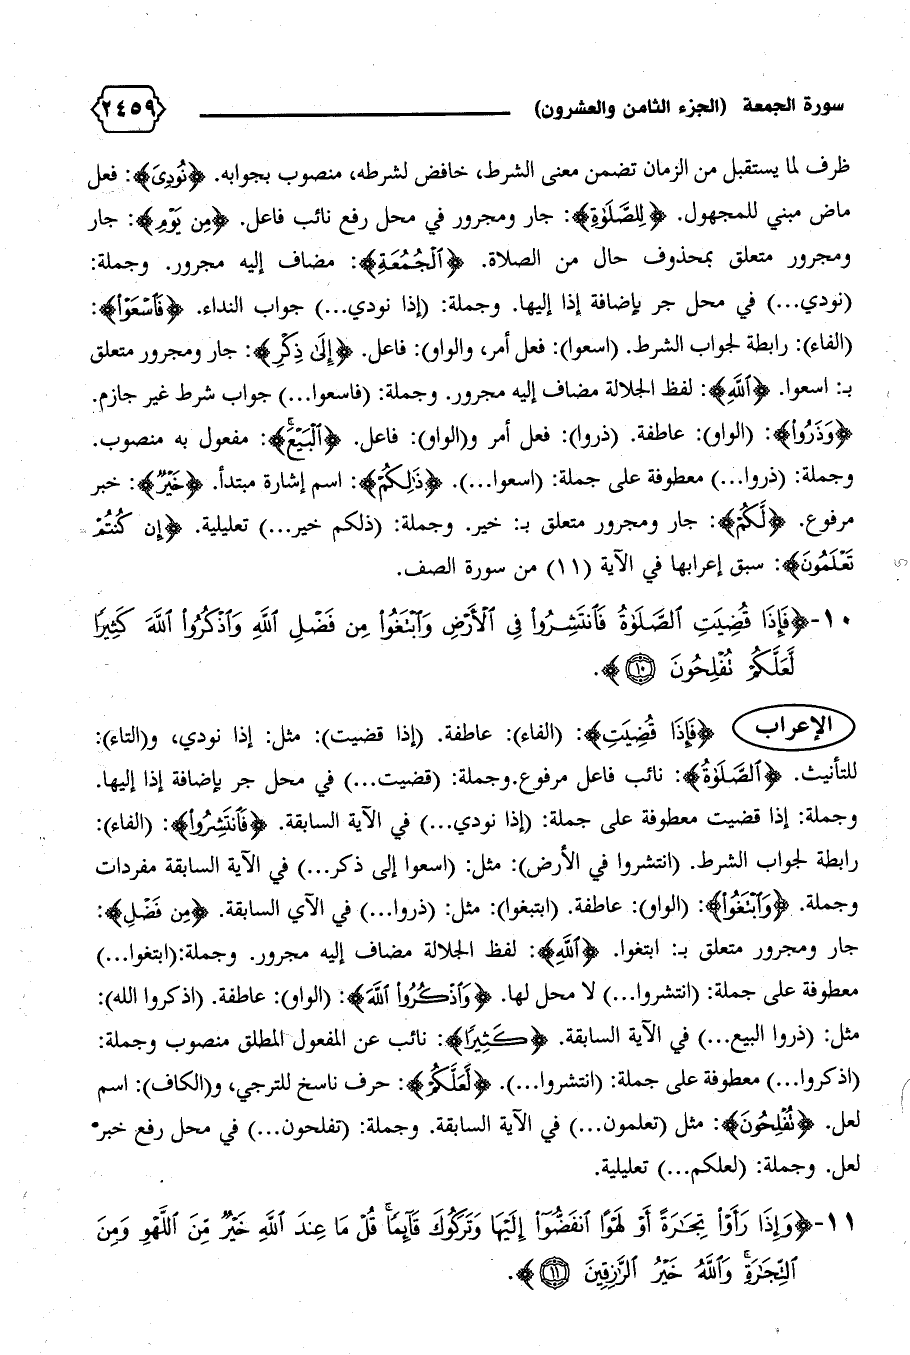 سورة الجمعة (الجزء الثامن والعشرون) ٢٤٥٩
ظرف لما يستقبل من الزمان تضمن معنى الشرط، خافض لشرطه، منصوب بجوابه. ﴿نُودِىَ﴾: فعل
ماض مبني للمجهول. ﴿لِلصَّلَوٰةِ﴾: جار ومجرور في محل رفع نائب فاعل. ﴿مِن يَوْمِ﴾: جار
ومجرور متعلق بمحذوف حال من الصلاة. ﴿ٱلْجُمُعَةِ﴾: مضاف إليه مجرور. وجملة:
(نودي...) في محل جر بإضافة إذا إليها. وجملة: (إذا نودي...) جواب النداء. ﴿فَٱسْعَوْا۟﴾:
(الفاء): رابطة لجواب الشرط. (اسعوا): فعل أمر، والواو): فاعل. ﴿إِلَىٰ ذِكْرِ﴾: جار ومجرور متعلق
بـ: اسعوا. ﴿ٱللَّهِ﴾: لفظ الجلالة مضاف إليه مجرور. وجملة: (فاسعوا...) جواب شرط غير جازم.
﴿وَذَرُوا۟﴾: (الواو): عاطفة. (ذروا): فعل أمر و(الواو): فاعل. ﴿ٱلْبَيْعَ ۚ﴾: مفعول به منصوب.
وجملة: (ذروا...) معطوفة على جملة: (اسعوا...). ﴿ذَٰلِكُمْ﴾: اسم إشارة مبتدأ. ﴿خَيْرٌ﴾: خبر
مرفوع. ﴿لَّكُمْ﴾: جار ومجرور متعلق بـ: خير. وجملة: (ذلكم خير...) تعليلية. ﴿إِن كُنتُمْ
تَعْلَمُونَ﴾: سبق إعرابها في الآية (١١) من سورة الصف.
١٠-﴿فَإِذَا قُضِيَتِ ٱلصَّلَوٰةُ فَٱنتَشِرُوا۟ فِى ٱلْأَرْضِ وَٱبْتَغُوا۟ مِن فَضْلِ ٱللَّهِ وَٱذْكُرُوا۟ ٱللَّهَ كَثِيرًا
لَّعَلَّكُمْ تُفْلِحُونَ ۝١٠﴾.
الإعراب ﴿فَإِذَا قُضِيَتِ﴾: (الفاء): عاطفة. (إذا قضيت): مثل: إذا نودي، و(التاء):
للتأنيث. ﴿ٱلصَّلَوٰةُ﴾: نائب فاعل مرفوع.وجملة: (قضيت...) في محل جر بإضافة إذا إليها.
وجملة: إذا قضيت معطوفة على جملة: (إذا نودي...) في الآية السابقة. ﴿فَٱنتَشِرُوا۟﴾: (الفاء):
رابطة لجواب الشرط. (انتشروا في الأرض): مثل: (اسعوا إلى ذكر...) في الآية السابقة مفردات
وجملة. ﴿وَٱبْتَغُوا۟﴾: (الواو): عاطفة. (ابتبغوا): مثل: (ذروا...) في الآي السابقة. ﴿مِن فَضْلِ﴾:
جار ومجرور متعلق بـ: ابتغوا. ﴿ٱللَّهِ﴾: لفظ الجلالة مضاف إليه مجرور. وجملة:(ابتغوا...)
معطوفة على جملة: (انتشروا...) لا محل لها. ﴿وَٱذْكُرُوا۟ ٱللَّهَ﴾: (الواو): عاطفة. (اذكروا الله):
مثل: (ذروا البيع...) في الآية السابقة. ﴿كَثِيرًا﴾: نائب عن المفعول المطلق منصوب وجملة:
(اذكروا...) معطوفة على جملة: (انتشروا...). ﴿لَّعَلَّكُمْ﴾: حرف ناسخ للترجي، و(الكاف): اسم
لعل. ﴿تُفْلِحُونَ﴾: مثل (تعلمون...) في الآية السابقة. وجملة: (تفلحون...) في محل رفع خبر
لعل. وجملة: (لعلكم...) تعليلية.
١١-﴿وَإِذَا رَأَوْا۟ تِجَٰرَةً أَوْ لَهْوًا ٱنفَضُّوٓا۟ إِلَيْهَا وَتَرَكُوكَ قَآئِمًا ۚ قُلْ مَا عِندَ ٱللَّهِ خَيْرٌ مِّنَ ٱللَّهْوِ وَمِنَ
ٱلتِّجَٰرَةِ ۚ وَٱللَّهُ خَيْرُ ٱلرَّٰزِقِينَ ۝١١﴾.